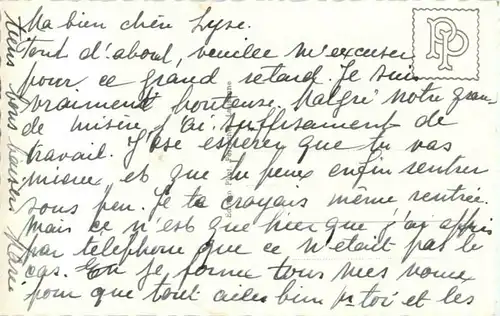 Ma bien chère Lyse.
Tout d'abord, veuillez m'excuser
pour ce grand retard. Je suis
vraiment honteuse. Malgré notre gran
de misère j'ai suffisament de
travail. J'ose esperer que tu vas
mieux et que tu peux enfin rentrer
sous peu. Je te croyais même rentrée.
Mais ce n'est que hier que j'ai appris
par telephone que ce n'était pas le
cas. Je forme tous mes voeux
pour que tout aille bien pr toi et les